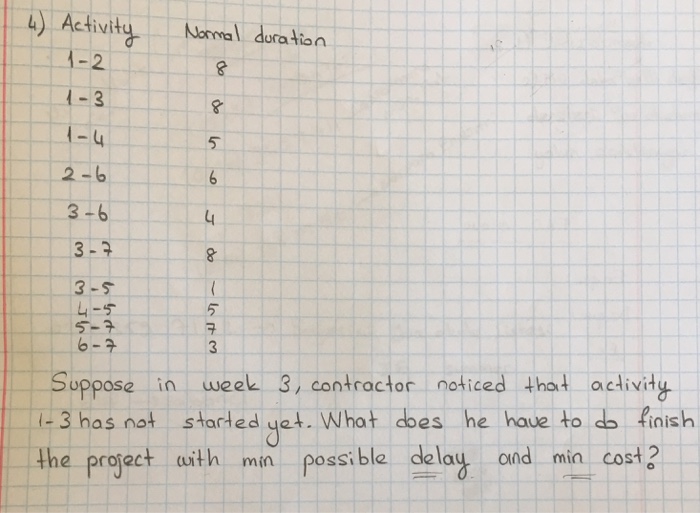 4) Activity Normal duration
1-2 8
1-3 8
1-4 5
2-6 6
3-6 4
3-7 8
3-5 1
4-5 5
5-7 7
6-7 3
Suppose in week 3, contractor noticed that activity
1-3 has not started yet. What does he have to do finish
the project with min possible delay and min cost?